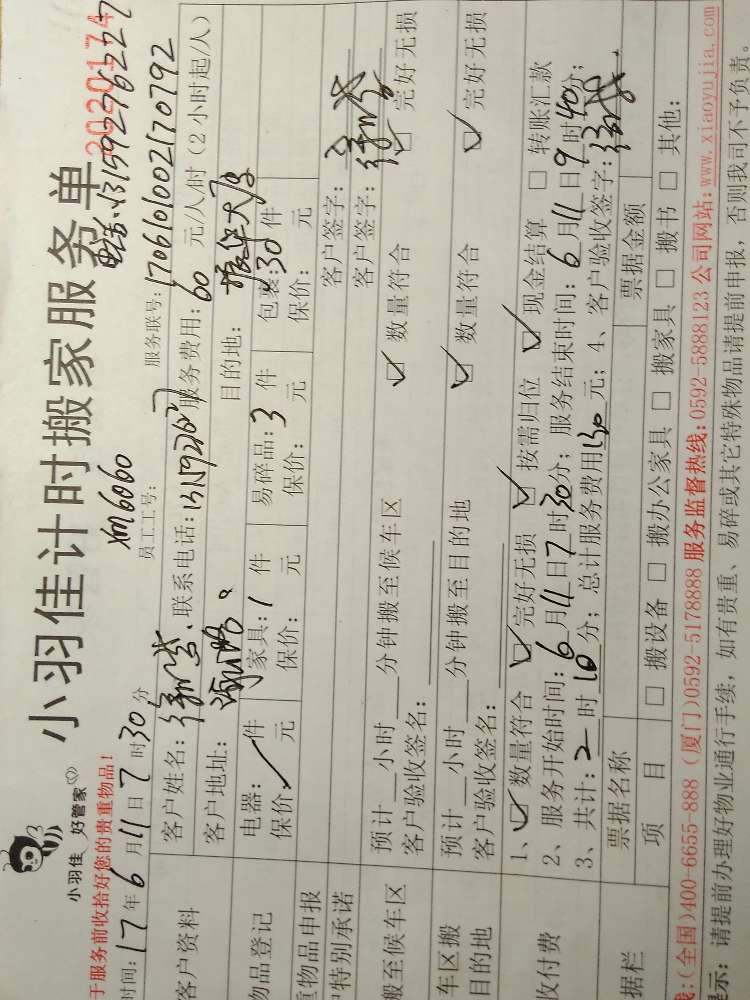 小羽佳 好管家
小羽佳计时搬家服务单
2020174
于服务前收拾好您的贵重物品!
xm6060
电话:13159276227
时间: 17 年 6 月 11 日 7 时 30 分
员工工号:
服务联号: 170610100217 0792
客户资料
客户姓名:
联系电话:
服务费用: 60 元/人/时(2小时起/人)
客户地址:
目的地: 振华大厦
物品登记
电器: 件 家具: 1 件 易碎品: 3 件 包裹: 30 件
保价: 元 保价: 元 保价: 元 保价: 元
重物品申报
特别承诺
客户签字:
客户签字:
搬至候车区
预计 小时 分钟搬至候车区 ☑ 数量符合 ☑ 完好无损
客户验收签名:
车区搬
目的地
预计 小时 分钟搬至目的地 ☑ 数量符合 ☑ 完好无损
客户验收签名:
收付费
1、☑ 数量符合 ☑ 完好无损 ☑ 按需归位 ☑ 现金结算 □ 转账汇款
2、服务开始时间: 6 月 11 日 7 时 30 分; 服务结束时间: 6 月 11 日 9 时 40 分;
3、共计: 2 时 10 分; 总计服务费用 130 元; 4、客户验收签字:
据栏
票据名称 票据金额
项 目 □ 搬设备 □ 搬办公家具 □ 搬家具 □ 搬书 □ 其他:
线:(全国)400-6655-888 (厦门)0592-5178888 服务监督热线:0592-5888123 公司网站:www.xiaoyujia.com
提示: 请提前办理好物业通行手续, 如有贵重、易碎或其它特殊物品请提前申报, 否则我司不予负责。